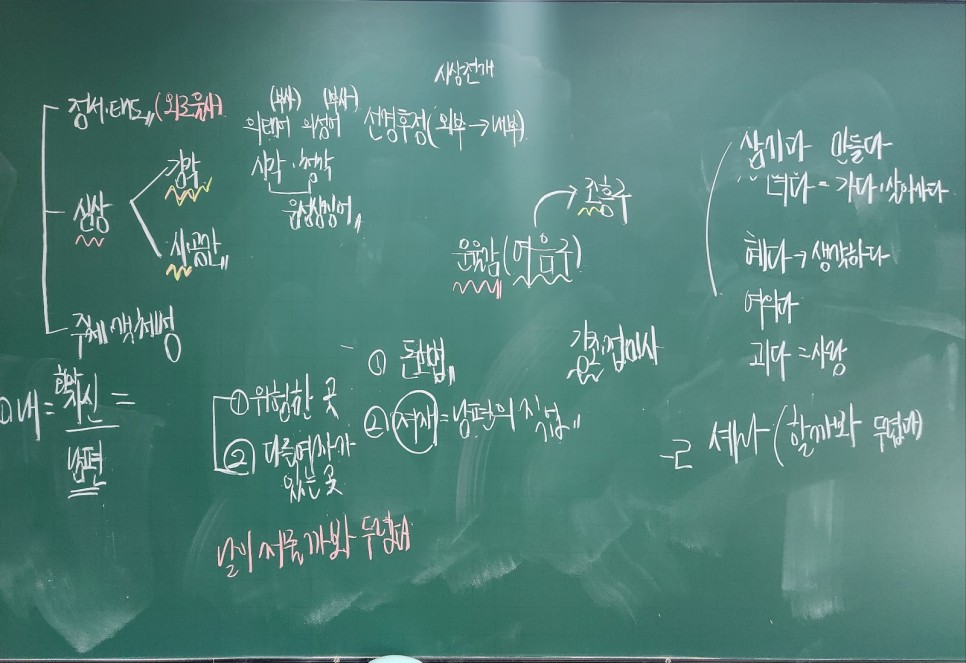 시상전개
정서·태도, (외로움사)
(부사) (부사)
의태어 의성어
선경후정(외부→내부)
시각·청각
음성상징어,
심상
감각
시·공간,
주체 객체성
운율감(여음구)
조흥구
삼기다 만들다
녀다 = 가다·살아가다
혜다→생각하다
여의다
괴다=사랑
-ㄹ 셰라 (할까봐 두렵다)
①내= 화자신 =
남편
①위험한 곳
② 다른여자가
있는 곳
① 돈법,
② 저재=남편의 직업,
강조·접미사
날이 저물까봐 두렵다